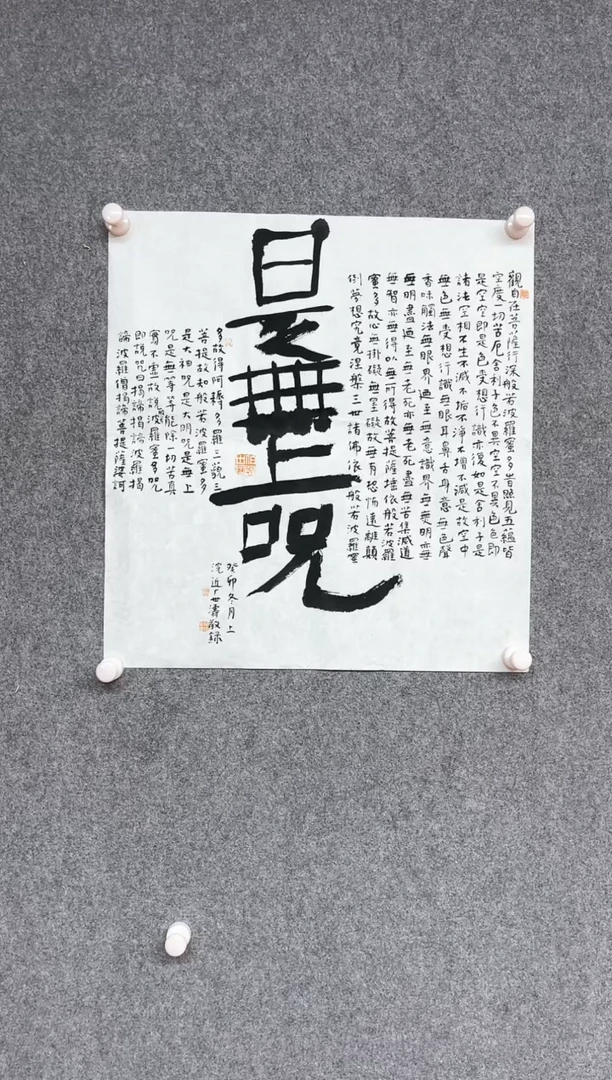 觀自在菩薩行深般若波羅蜜多時照見五蘊皆
空度一切苦厄舍利子色不異空空不異色色即
是空空即是色受想行識亦復如是舍利子是
諸法空相不生不滅不垢不淨不增不減是故空中
無色無受想行識無眼耳鼻舌身意無色聲
香味觸法無眼界迺至無意識界無無明亦無
無明盡迺至無老死亦無老死盡無苦集滅道
無智亦無得以無所得故菩提薩埵依般若波羅
蜜多故心無掛礙無罣礙故無有恐怖遠離顛
倒夢想究竟涅槃三世諸佛依般若波羅蜜
是無上咒
多故得阿耨多羅三藐三
菩提故知般若波羅蜜多
是大神咒是大明咒是無上
咒是無等等咒能除一切苦真
實不虛故說般若波羅蜜多咒
即說咒曰揭諦揭諦波羅揭
諦波羅僧揭諦菩提薩婆訶
癸卯冬月上
浣近廠世濤敬錄